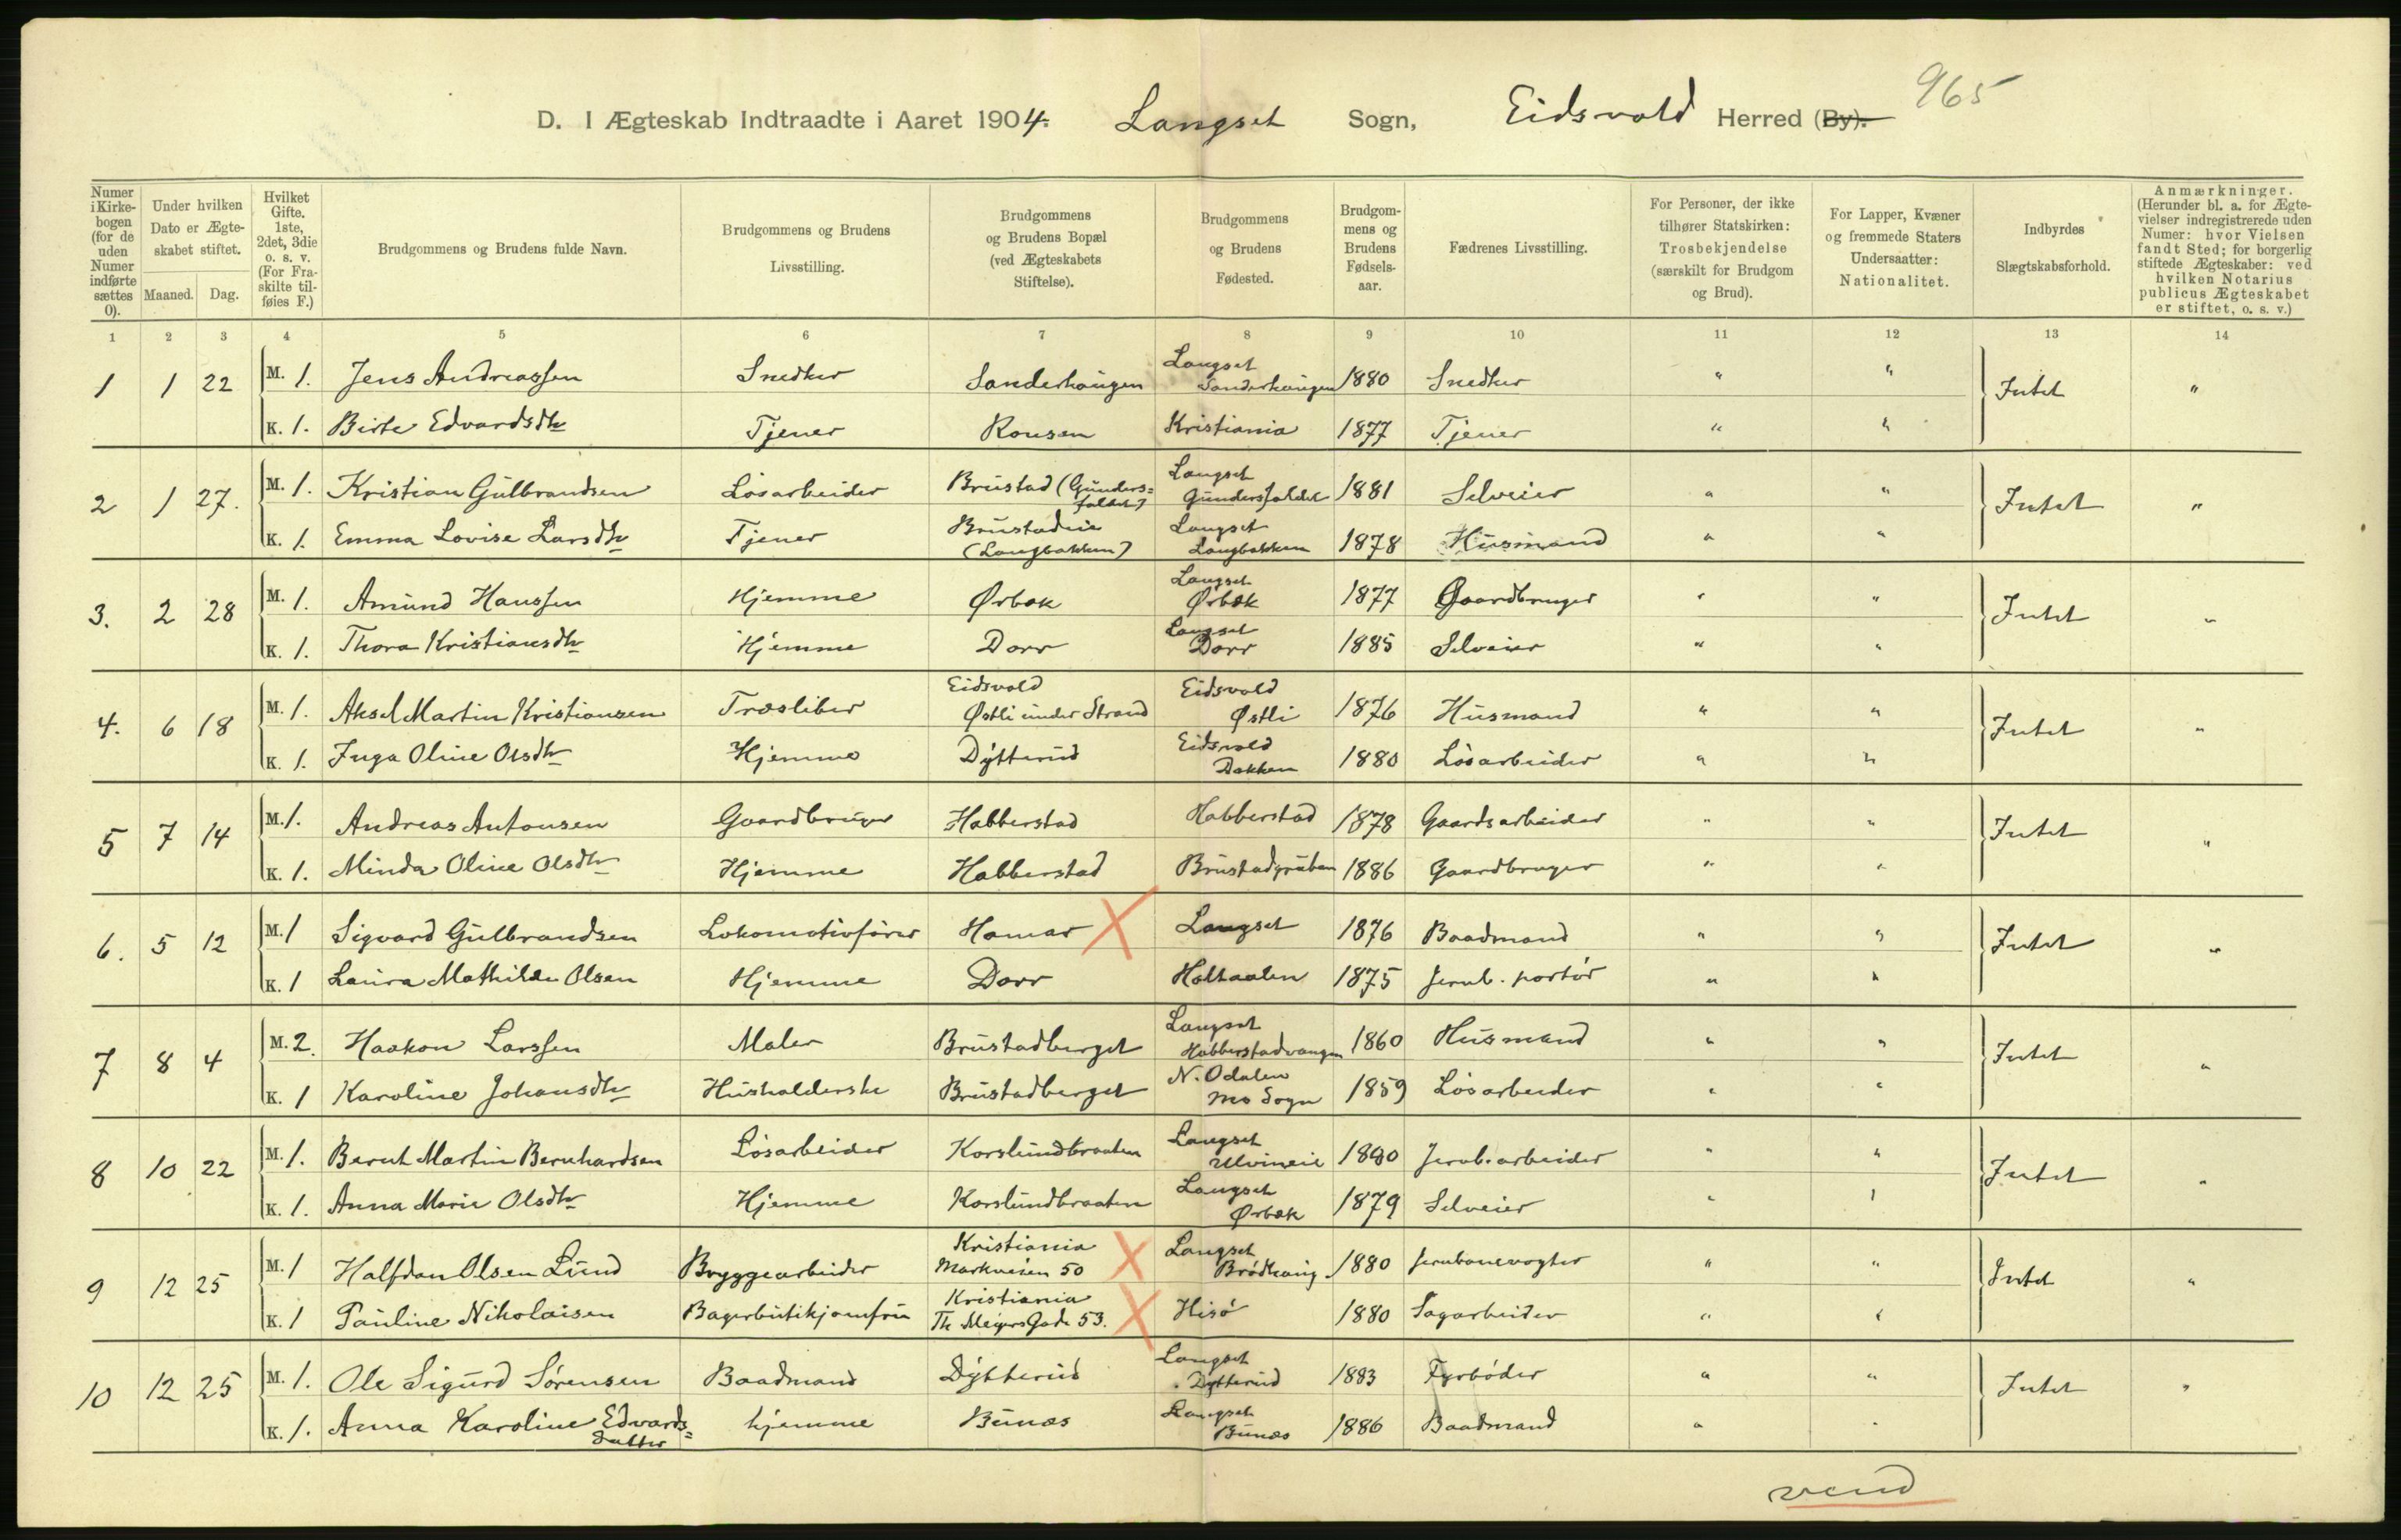 965
D. I Ægteskab Indtraadte i Aaret 1904. Langset Sogn, Eidsvold Herred (By).
Numer i Kirkebogen (for de uden Numer indførte sættes 0).
Under hvilken Dato er Ægteskabet stiftet.
Maaned. Dag.
Hvilket Gifte. 1ste, 2det, 3die o. s. v. (For Fraskilte tilføies F.)
Brudgommens og Brudens fulde Navn.
Brudgommens og Brudens Livsstilling.
Brudgommens og Brudens Bopæl (ved Ægteskabets Stiftelse).
Brudgommens og Brudens Fødested.
Brudgommens og Brudens Fødselsaar.
Fædrenes Livsstilling.
For Personer, der ikke tilhører Statskirken: Trosbekjendelse (særskilt for Brudgom og Brud).
For Lapper, Kvæner og fremmede Staters Undersaatter: Nationalitet.
Indbyrdes Slægtskabsforhold.
Anmærkninger. (Herunder bl. a. for Ægtevielser indregistrerede uden Numer: hvor Vielsen fandt Sted; for borgerlig stiftede Ægteskaber: ved hvilken Notarius publicus Ægteskabet er stiftet, o. s. v.)
1 2 3 4 5 6 7 8 9 10 11 12 13 14
1 1 22 M. 1. Jens Andreassen Snedker Sanderhaugen Langset Sanderhaugen 1880 Snedker " " Intet "
K. 1. Birte Edvardsdtr Tjener Rousen Kristiania 1877 Tjener " "
2 1 27. M. 1. Kristian Gulbrandsen Løsarbeider Brustad (Gundersfaldet) Langset Gundersfaldet 1881 Selveier " " Intet "
K. 1. Emma Lovise Larsdtr Tjener Brustadeie (Langbakken) Langset Langbakken 1878 Husmand " "
3. 2 28 M. 1. Amund Hanssen Hjemme Ørbæk Langset Ørbæk 1877 Gaardbruger " " Intet "
K. 1. Thora Kristiansdtr Hjemme Dorr Langset Dorr 1885 Selveier " "
4. 6 18 M. 1. Aksel Martin Kristiansen Træsliber Eidsvold Østli under Strand Eidsvold Østli 1876 Husmand " " Intet "
K. 1. Inga Oline Olsdtr Hjemme Dytterud Eidsvold Bakken 1880 Løsarbeider " "
5 7 14 M. 1. Andreas Antonsen Gaardbruger Habberstad Habberstad 1878 Gaardsarbeider " " Intet "
K. 1. Minda Oline Olsdtr Hjemme Habberstad Brustadgruben 1886 Gaardbruger " "
6. 5 12 M. 1 Sigvard Gulbrandsen Lokomotivfører Hamar X Langset 1876 Baadmand " " Intet "
K. 1 Laura Mathilde Olsen Hjemme Dorr Holtaalen 1875 Jernb. portør " "
7 8 4 M. 2. Haakon Larssen Maler Brustadberget Langset Habberstadvangen 1860 Husmand " " Intet "
K. 1 Karoline Johansdtr Husholderske Brustadberget N. Odalen Mo Sogn 1859 Løsarbeider " "
8 10 22 M. 1. Bernt Martin Bernhardsen Løsarbeider Korslundbraaten Langset Ulvineie 1880 Jernb.arbeider " " Intet "
K. 1. Anna Marie Olsdtr Hjemme Korslundbraaten Langset Ørbæk 1879 Selveier " "
9 12 25 M. 1 Halfdan Olsen Lund Bryggearbeider Kristiania Markveien 50 X Langset Brødhaug 1880 Jernbanevogter " " Intet "
K. 1 Pauline Nikolaisen Bagerbutikjomfru Kristiania Th Meyers Gade 53. X Hisø 1880 Sagarbeider " "
10 12 25 M. 1. Ole Sigurd Sørensen Baadmand Dytterud Langset Dytterud 1883 Fyrbøder " " Intet "
K. 1. Anna Karoline Edvardsdatter hjemme Bunæs Langset Bunæs 1886 Baadmand " "
vend